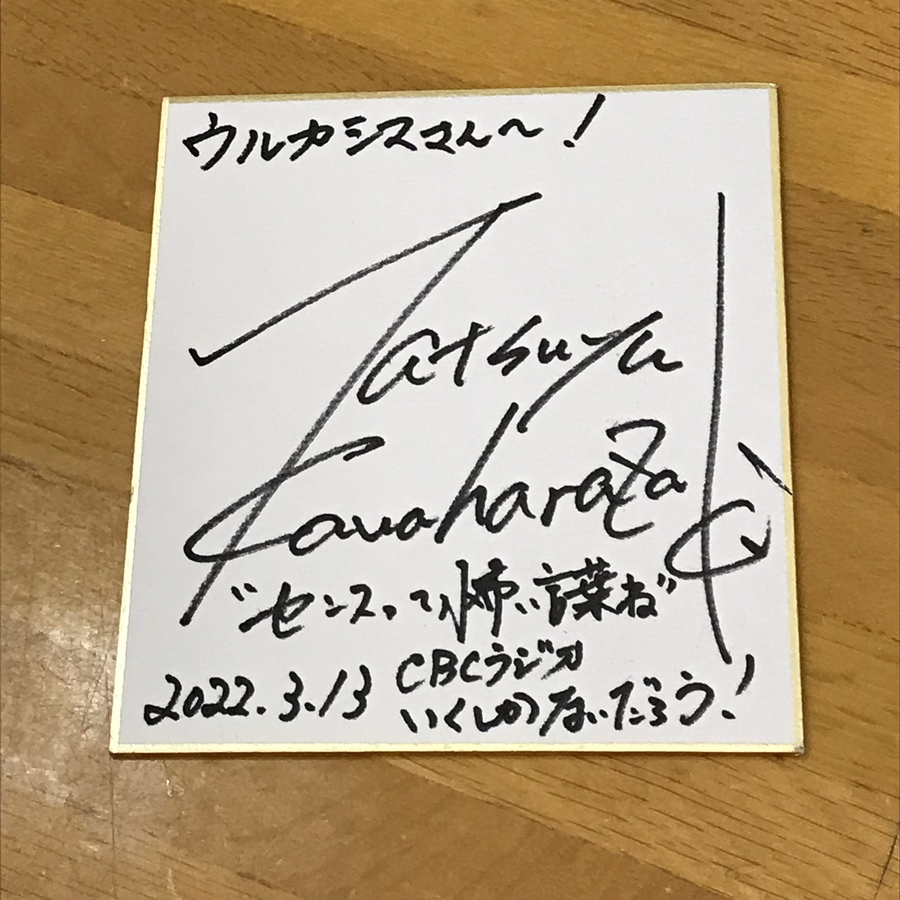 ウルカシスさん〜！
Tatsuya
Kawaharazaki
"センスって怖い言葉ね"
2022.3.13
CBCラジオ
いくしかないだろう！